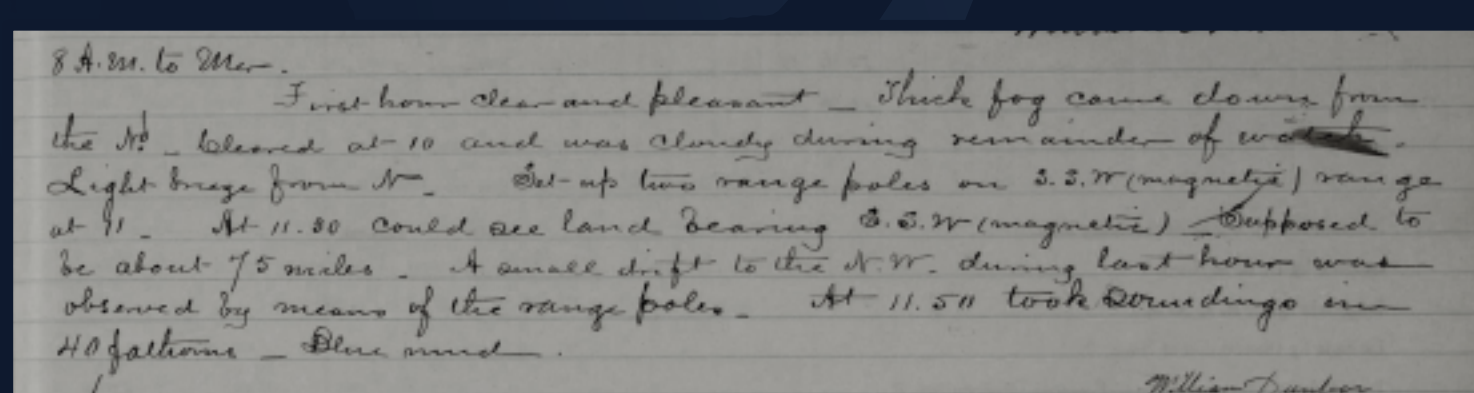 8 A.M. to Mer.
First hour clear and pleasant _ Thick fog came down from
the Nd _ Cleared at 10 and was cloudy during remainder of watch.
Light breeze from N _ Set up two range poles on S.S.W (magnetic) range
at 11 _ At 11.30 could see land bearing S.S.W (magnetic) _ Supposed to
be about 75 miles _ A small drift to the N.W. during last hour was
observed by means of the range poles _ At 11.50 took soundings in
40 fathoms _ Blue mud .
William Dunbar